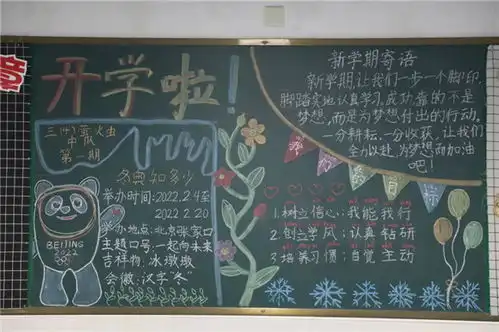 开学啦!
三(4)萤火虫
中队
第一期
冬奥知多少
举办时间:2022.2.4至
2022.2.20
举办地点:北京张家口
主题口号:一起向未来
吉祥物:冰墩墩
会徽:汉字“冬”
BEIJING
2022
新学期寄语
新学期,让我们一步一个脚印,
脚踏实地认真学习,成功靠的不是
梦想,而是为梦想付出的行动。
一分耕耘,一分收获,让我们
全力以赴,为梦想而加油
吧!
1.树立信心:我能我行
2.创立学风:认真钻研
3.培养习惯:自觉主动
章